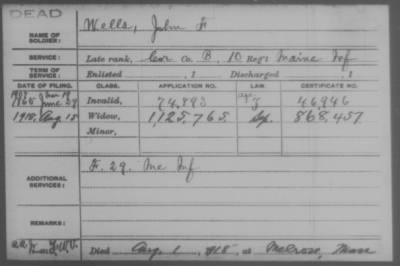 DEAD
NAME OF SOLDIER: Wells, John F
SERVICE: Late rank, Cor Co. B, 10 Reg't Maine Inf
TERM OF SERVICE: Enlisted , 1 Discharged , 1
DATE OF FILING. CLASS. APPLICATION NO. LAW. CERTIFICATE NO.
1865 June 29 Invalid, 74,893 46946
1918, Aug 15 Widow, 1,125,765 868,457
Minor,
ADDITIONAL SERVICES: F. 29. Me Inf
REMARKS:
Died Aug. 1, 1918, at Melrose, Mass